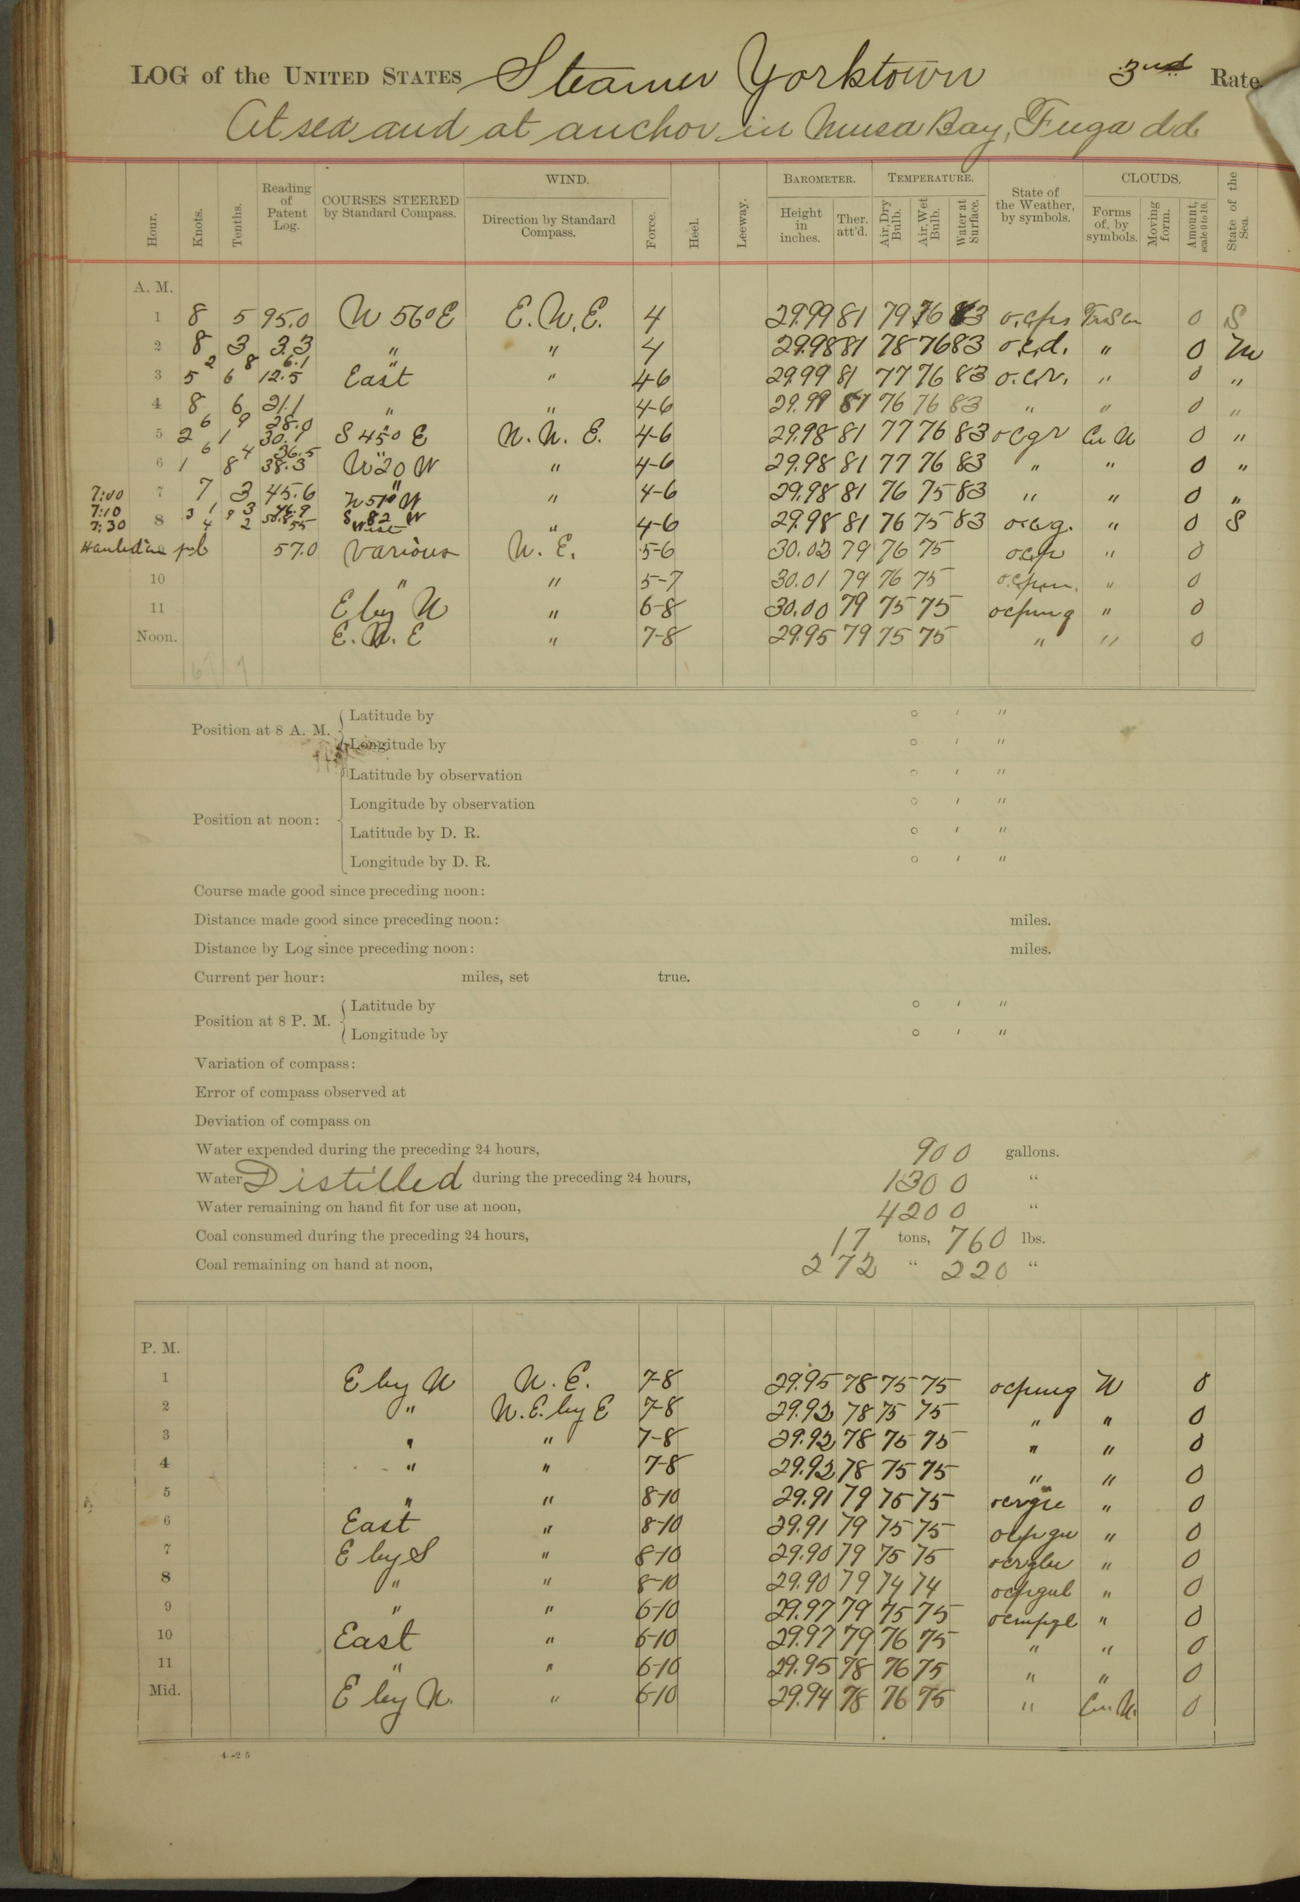 LOG of the UNITED STATES Steamer Yorktown 3rd Rate
At sea and at anchor in Musa Bay, Fuga Id.
Hour. Knots. Tenths. Reading of Patent Log. COURSES STEERED by Standard Compass. WIND. Direction by Standard Compass. Force. Heel. Leeway. BAROMETER. Height in inches. Ther. att'd. TEMPERATURE. Air, Dry Bulb. Air, Wet Bulb. Water at Surface. State of the Weather, by symbols. CLOUDS. Forms of, by symbols. Moving form. Amount, scale 0 to 10. State of the Sea.
A. M.
1 8 5 95.0 N 56° E E.N.E. 4 29.99 81 79 76 83 0 S
2 8 3 3.3 " " 4 29.98 81 78 76 83 o.c.d. " 0 M
2 8 6.1
3 5 6 12.5 East " 4-6 29.99 81 77 76 83 o.c.r. " 0 "
4 8 6 21.1 " " 4-6 29.99 81 76 76 83 " " 0 "
6 9 28.0
5 2 1 30.1 S 45° E N.N.E. 4-6 29.98 81 77 76 83 ocgr Cu N 0 "
6 4 36.5
6 1 8 38.3 N 20 W " 4-6 29.98 81 77 76 83 " " 0 "
7:00 7 7 3 45.6 " " 4-6 29.98 81 76 75 83 " " 0 "
7:10 1 3 46.9 N 51° W
7:30 8 3 9 S 82 W " 4-6 29.98 81 76 75 83 o.c.g. " 0 S
4 2 55 West
Hauled in p.l. 57.0 Various N.E. 5-6 30.02 79 76 75 ocp " 0
10 " " 5-7 30.01 79 76 75 " 0
11 E by N " 6-8 30.00 79 75 75 ocpmg " 0
Noon. E.N.E " 7-8 29.95 79 75 75 " " 0
67 7
Position at 8 A. M. Latitude by ° ′ ″
Longitude by ° ′ ″
Position at noon: Latitude by observation ° ′ ″
Longitude by observation ° ′ ″
Latitude by D. R. ° ′ ″
Longitude by D. R. ° ′ ″
Course made good since preceding noon:
Distance made good since preceding noon: miles.
Distance by Log since preceding noon: miles.
Current per hour: miles, set true.
Position at 8 P. M. Latitude by ° ′ ″
Longitude by ° ′ ″
Variation of compass:
Error of compass observed at
Deviation of compass on
Water expended during the preceding 24 hours, 900 gallons.
Water Distilled during the preceding 24 hours, 1300 "
Water remaining on hand fit for use at noon, 4200 "
Coal consumed during the preceding 24 hours, 17 tons, 760 lbs.
Coal remaining on hand at noon, 272 " 220 "
P. M.
1 E by N N.E. 7-8 29.95 78 75 75 ocpmg N 0
2 " N.E. by E 7-8 29.92 78 75 75 " " 0
3 " " 7-8 29.92 78 75 75 " " 0
4 " " 7-8 29.92 78 75 75 " " 0
5 " " 8-10 29.91 79 75 75 " 0
6 East " 8-10 29.91 79 75 75 " 0
7 E by S " 8-10 29.90 79 75 75 " 0
8 " " 8-10 29.90 79 74 74 " 0
9 " " 6-10 29.97 79 75 75 " 0
10 East " 6-10 29.97 79 76 75 " " 0
11 " " 6-10 29.95 78 76 75 " " 0
Mid. E by N. " 6-10 29.94 78 76 75 " Cu N. 0
4-25